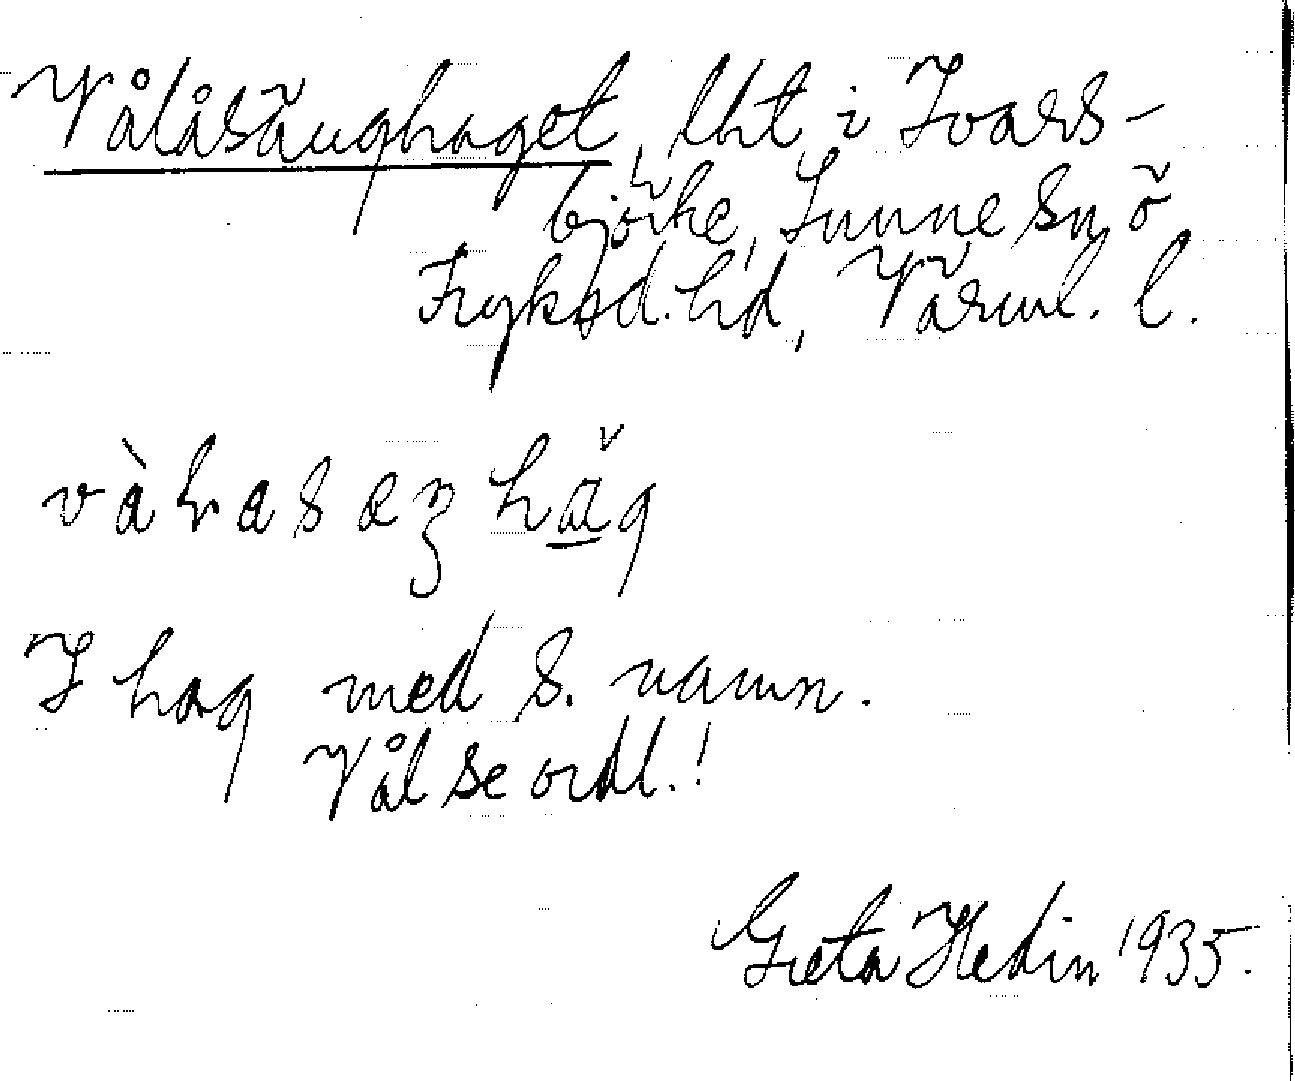 Vålåsänghaget, lht i Ivars-
björke, Sunne sn, ö
Fryksd. hd, Värml. l.
vàƚasæŋhăg
I hag med s. namn.
Vål se ordl.!
Greta Hedin 1935.